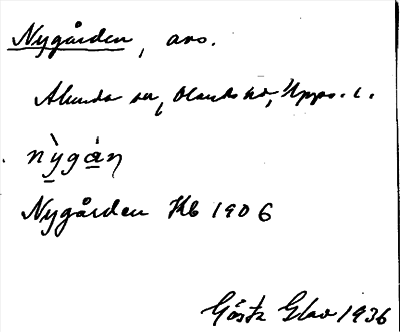 Nygården, avs.
Alunda sn, Olands hd, Upps. l.
nỳgàn
Nygården Kb 1906
Gösta Glav 1936